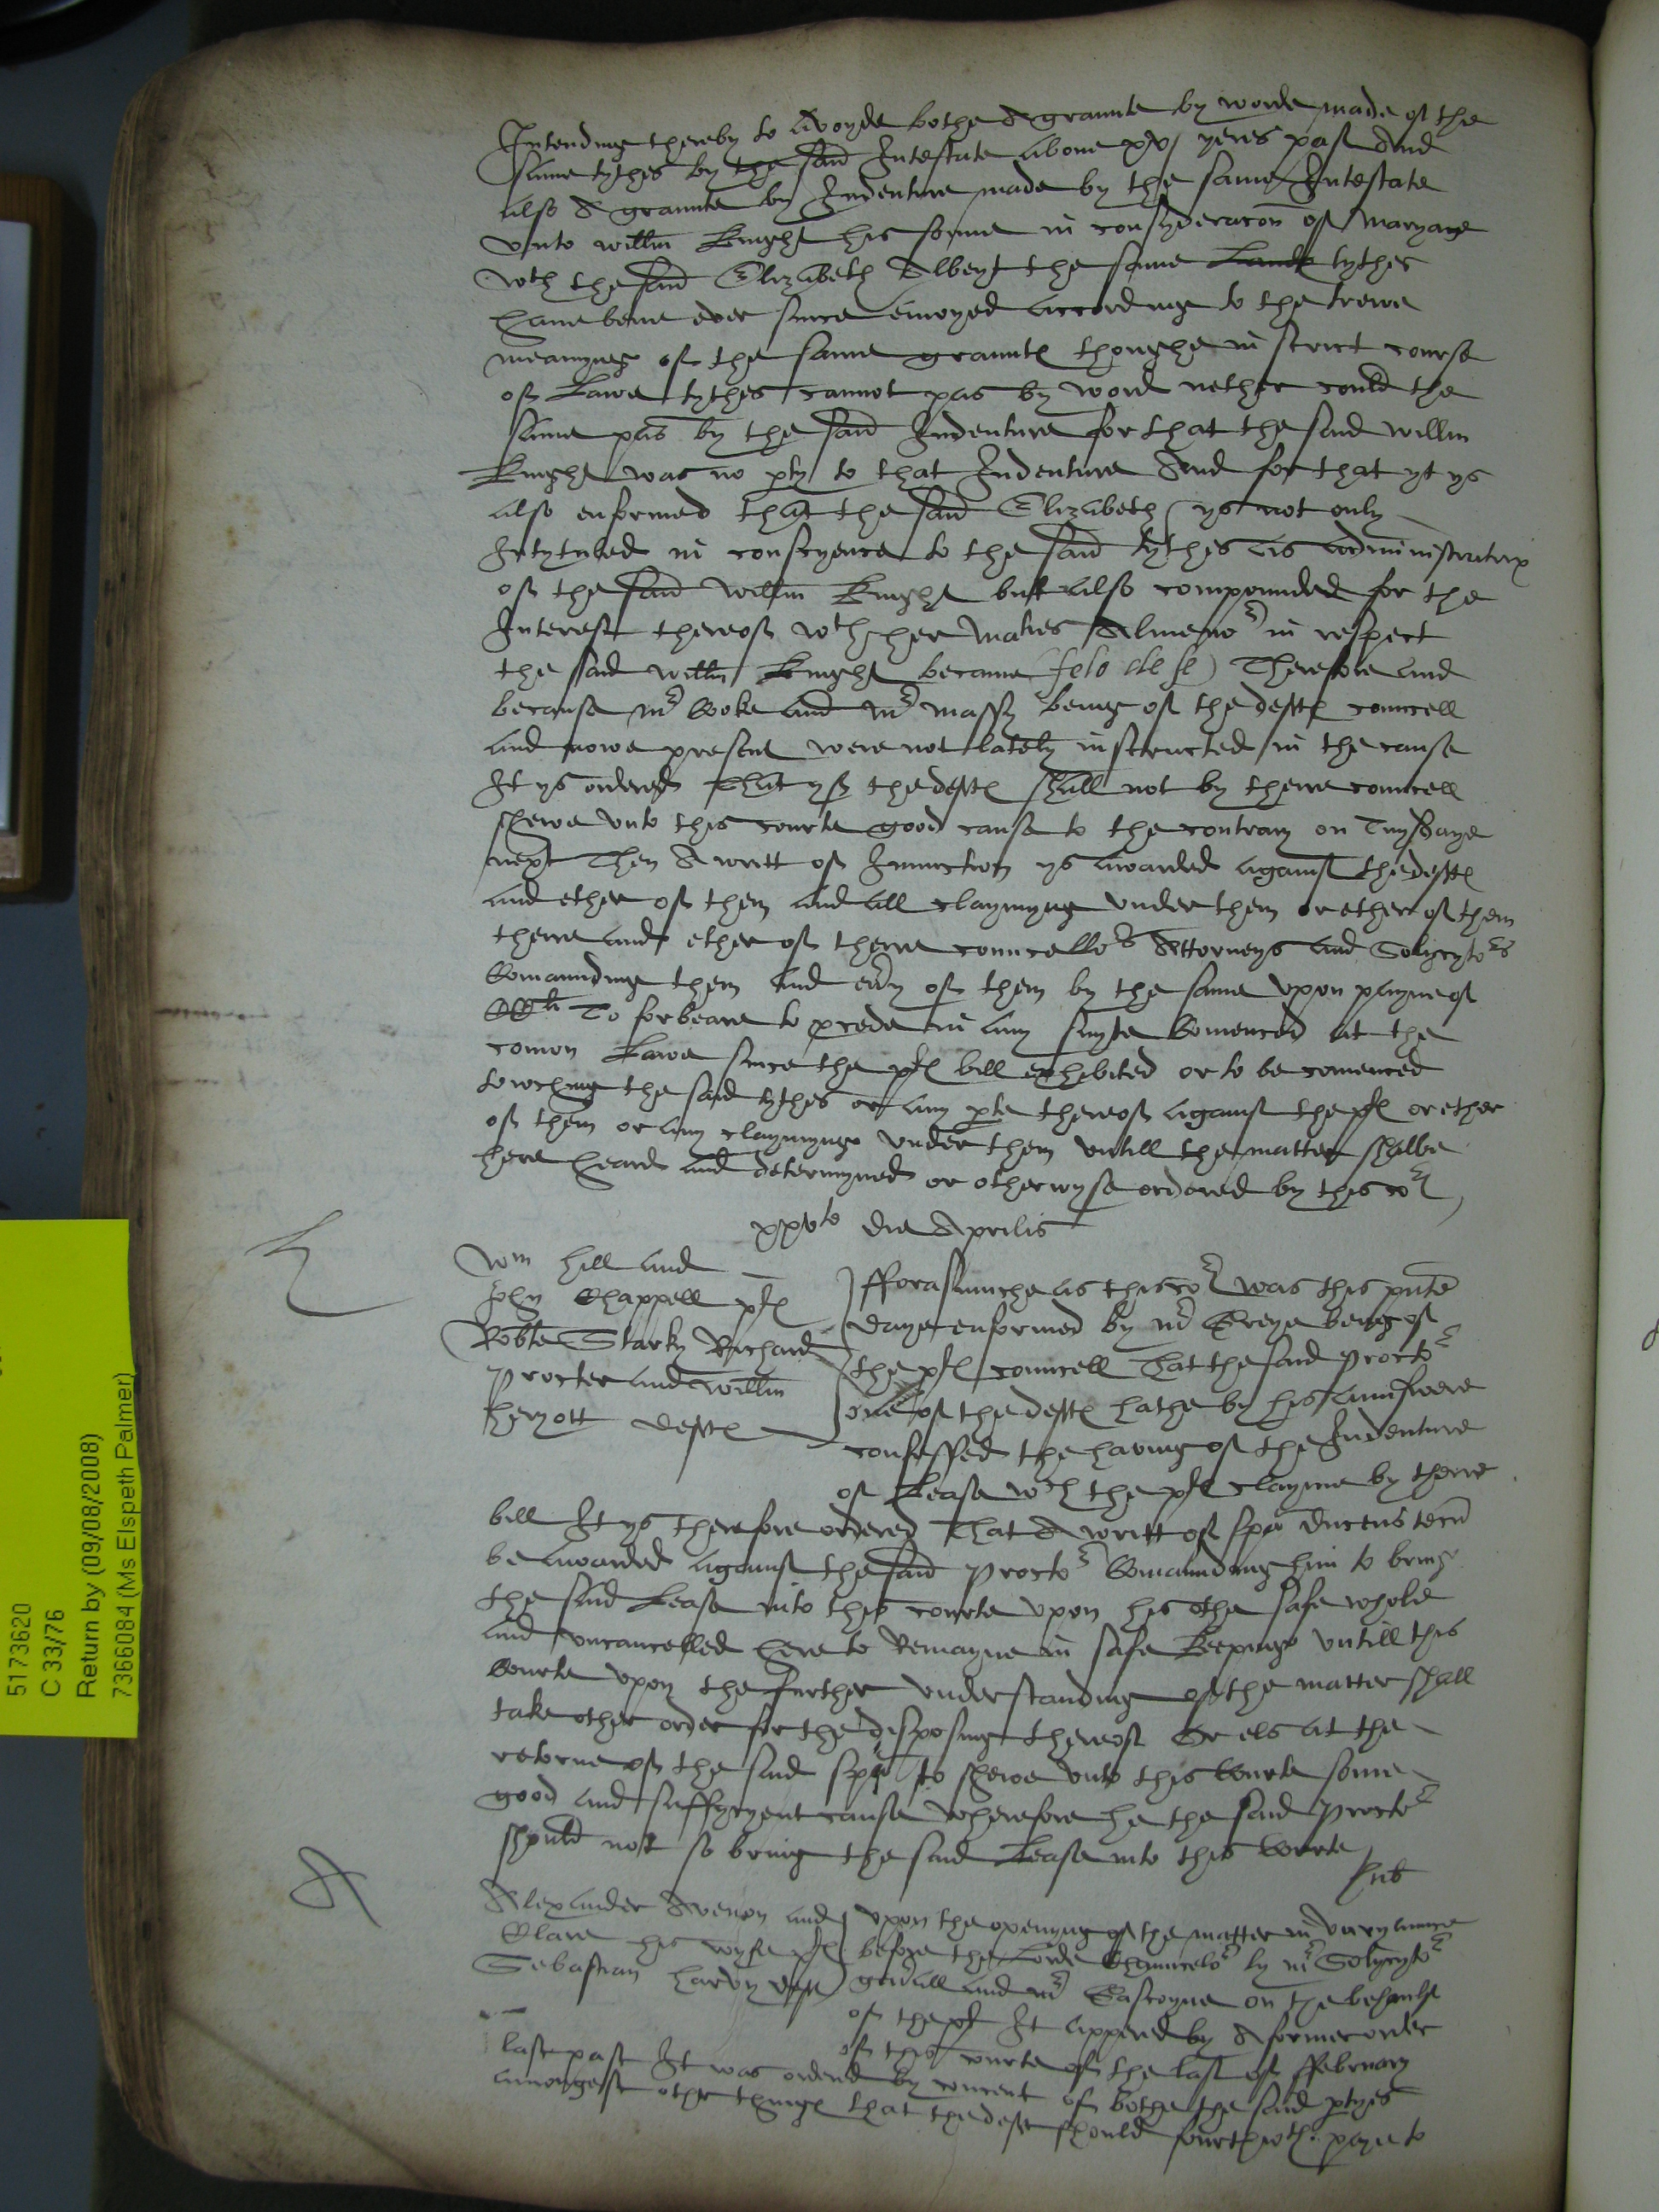 Intending thereby to avoyde bothe A graunte by worde made of the
same tythes by the said Intestate above xxx yeres past And
also A graunte by Indenture made by the same Intestate
vnto willm Knight his sonne in consyderacon of Maryage
wth the said Elizabeth Albeyt the same Lande tythes
have bene ever since enioyed according to the trewe
meanynge of the same graunte thoughe in strict course
of Lawe tythes cannot pas by word nether could the
same pas by the said Indenture for that the said willm
Knight was no pty to that Indenture And for that yt ys
also enformed that the said Elizabeth ys not only
Intytuled in conscyence to the said tythes as administratrix
of the said willm Knight but also compounded for the
Interest thereof wth her Maties Almeno r in respect
the said willm Knight became (felo de se) Therefore and
because mr Coke and mr massy being of the deftes councell
and nowe present were not lately instructed in the cause
It ys ordered That yf the deftes shall not by there councell
shewe vnto this courte good cause to the contrary on Tuysdaye
next Then A writt of Iniunction ys awarded against the deftes
and ether of them and all claymyng vnder them or ether of them
there and ether of there councellors Attorneys and Solycytors
Comaunding them and euy of them by the same vpon payne of
CCli To forbeare to pcede in any suyte Comenced at the
comon Lawe since the ples bill exhibited or to be comenced
towching the said tythes or any pte thereof against the ples or ether
of them or any claymynge vnder them vntill the matter shalbe
here heard and determyned or otherwyse ordered by this cor
xxvto die Aprilis
Wm hill and
John Chappell ples
Robte Starky Richard
Procter and willm
heryott deftes
fforasmuche as this cor was this pnte
daye enformed by mr Greye being of
the ples councell That the said Proctor
one of the deftes hathe by his aunswere
confessed the having of the Indenture
of Lease wch the ples clayme by there
bill It ys therefore ordered That A writt of spa ducens tecu
be awarded against the said Proctor Comaunding him to bring
the said Lease into this courte vpon his othe safe whole
and vncancelled here to Remayne in safe keepinge vntill this
Courte vpon the further vnderstanding of the matter shall
take other order for the disposing thereof Or els at the
retorne of the said spa to shewe vnto this Courte some
good and suffycyent cause wherefore he the said Proctor
should not so bring the said Lease into this Courte
Alexander Avenon and
Clare his wyfe ples
Sebastian hardy deft
vpon the openynge of the matter in varyaunce
before the Lorde Chauncelor by mr Solycytor
gen'all and mr Gascoyne on the behaulfe
of the ples It appered by A former order
of this courte of the last of ffebruary
last past It was ordered by concent of bothe the said ptyes
amongest other things that the deft should fourthwth paye to
5173620
C 33/76
Return by (09/08/2008)
7366084 (Ms Elspeth Palmer)